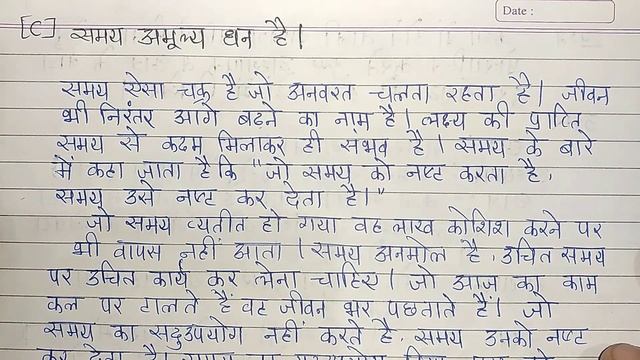 Date :
[C] समय अमूल्य धन है।
समय ऐसा चक्र है जो अनवरत चलता रहता है। जीवन
भी निरंतर आगे बढ़ने का नाम है। लक्ष्य की प्राप्ति
समय से कदम मिलाकर ही संभव है। समय के बारे
में कहा जाता है कि "जो समय को नष्ट करता है,
समय उसे नष्ट कर देता है।"
जो समय व्यतीत हो गया वह लाख कोशिश करने पर
भी वापस नहीं आता। समय अनमोल है, उचित समय
पर उचित कार्य कर लेना चाहिए। जो आज का काम
कल पर टालते हैं वह जीवन भर पछताते हैं। जो
समय का सदुउपयोग नहीं करते है, समय उनको नष्ट
कर देता है।